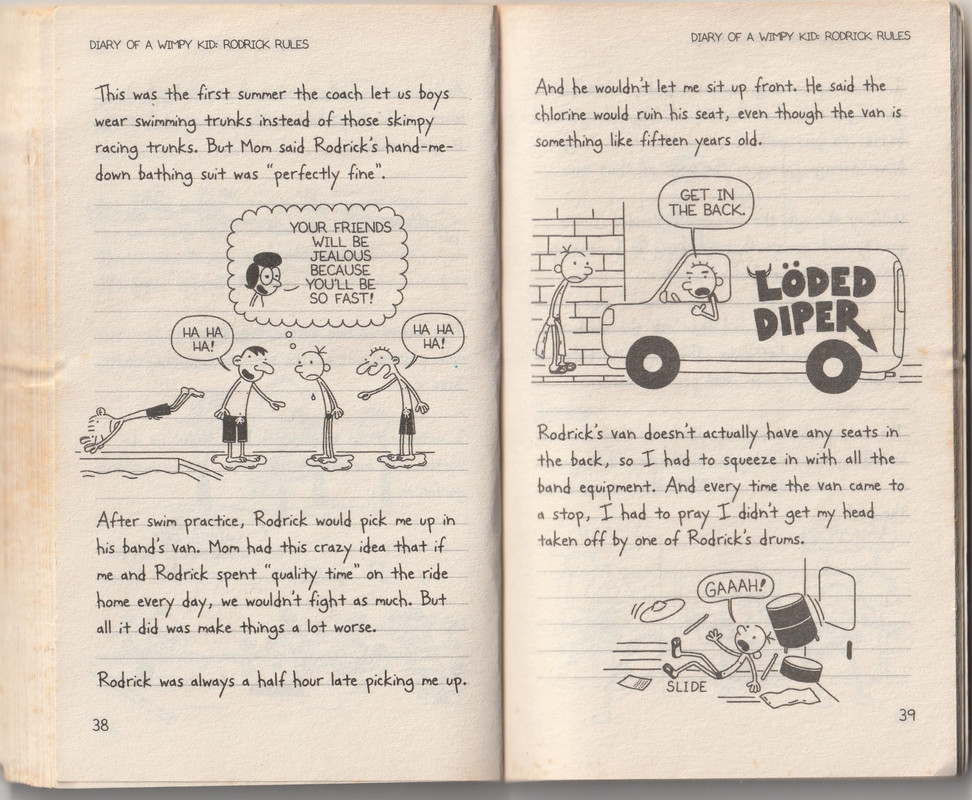 DIARY OF A WIMPY KID: RODRICK RULES
This was the first summer the coach let us boys
wear swimming trunks instead of those skimpy
racing trunks. But Mom said Rodrick's hand-me-
down bathing suit was "perfectly fine".
YOUR FRIENDS
WILL BE
JEALOUS
BECAUSE
YOU'LL BE
SO FAST!
HA HA
HA!
HA HA
HA!
After swim practice, Rodrick would pick me up in
his band's van. Mom had this crazy idea that if
me and Rodrick spent "quality time" on the ride
home every day, we wouldn't fight as much. But
all it did was make things a lot worse.
Rodrick was always a half hour late picking me up.
38
DIARY OF A WIMPY KID: RODRICK RULES
And he wouldn't let me sit up front. He said the
chlorine would ruin his seat, even though the van is
something like fifteen years old.
GET IN
THE BACK.
LÖDED
DIPER
Rodrick's van doesn't actually have any seats in
the back, so I had to squeeze in with all the
band equipment. And every time the van came to
a stop, I had to pray I didn't get my head
taken off by one of Rodrick's drums.
GAAAH!
SLIDE
39